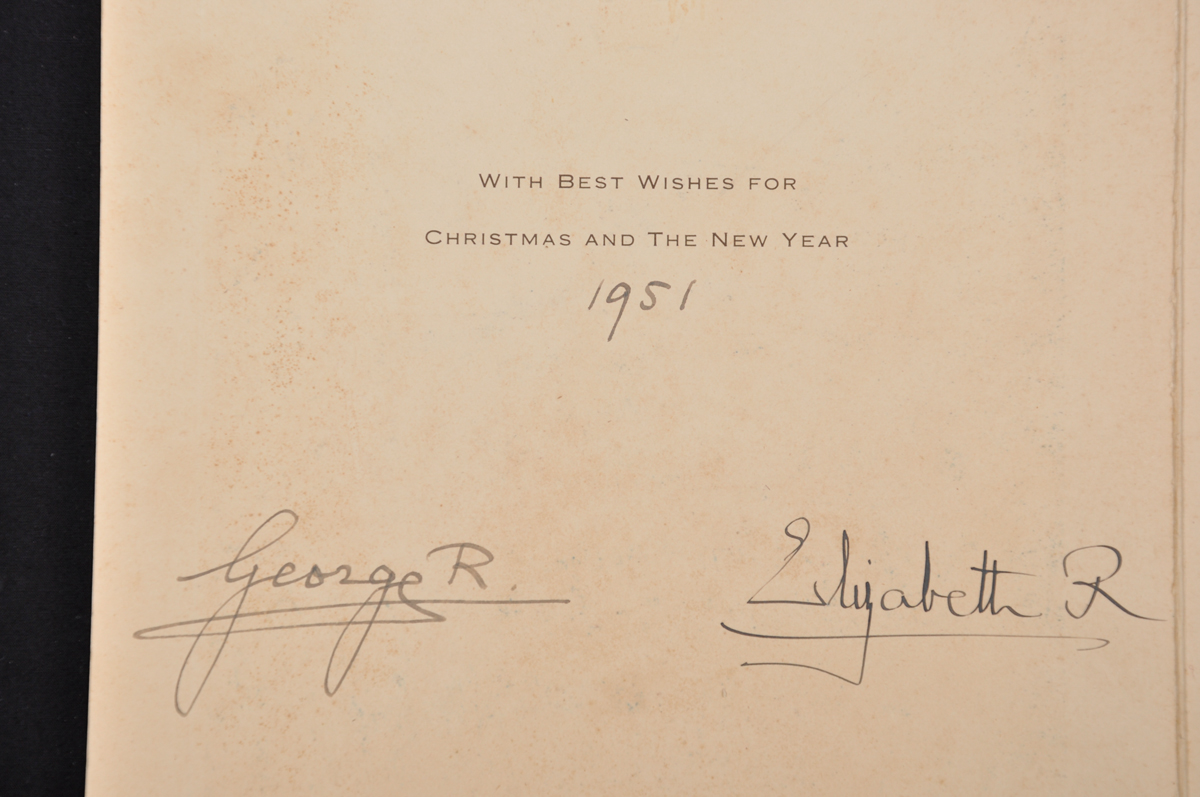 With Best Wishes for
Christmas and The New Year
1951
George R.
Elizabeth R